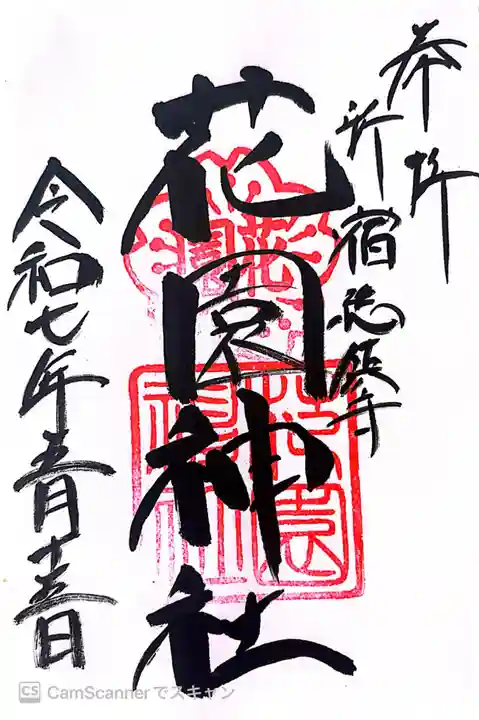 奉拝
新宿総鎮守
花園神社
令和七年五月十五日
花園
花園神社
CS CamScannerでスキャン